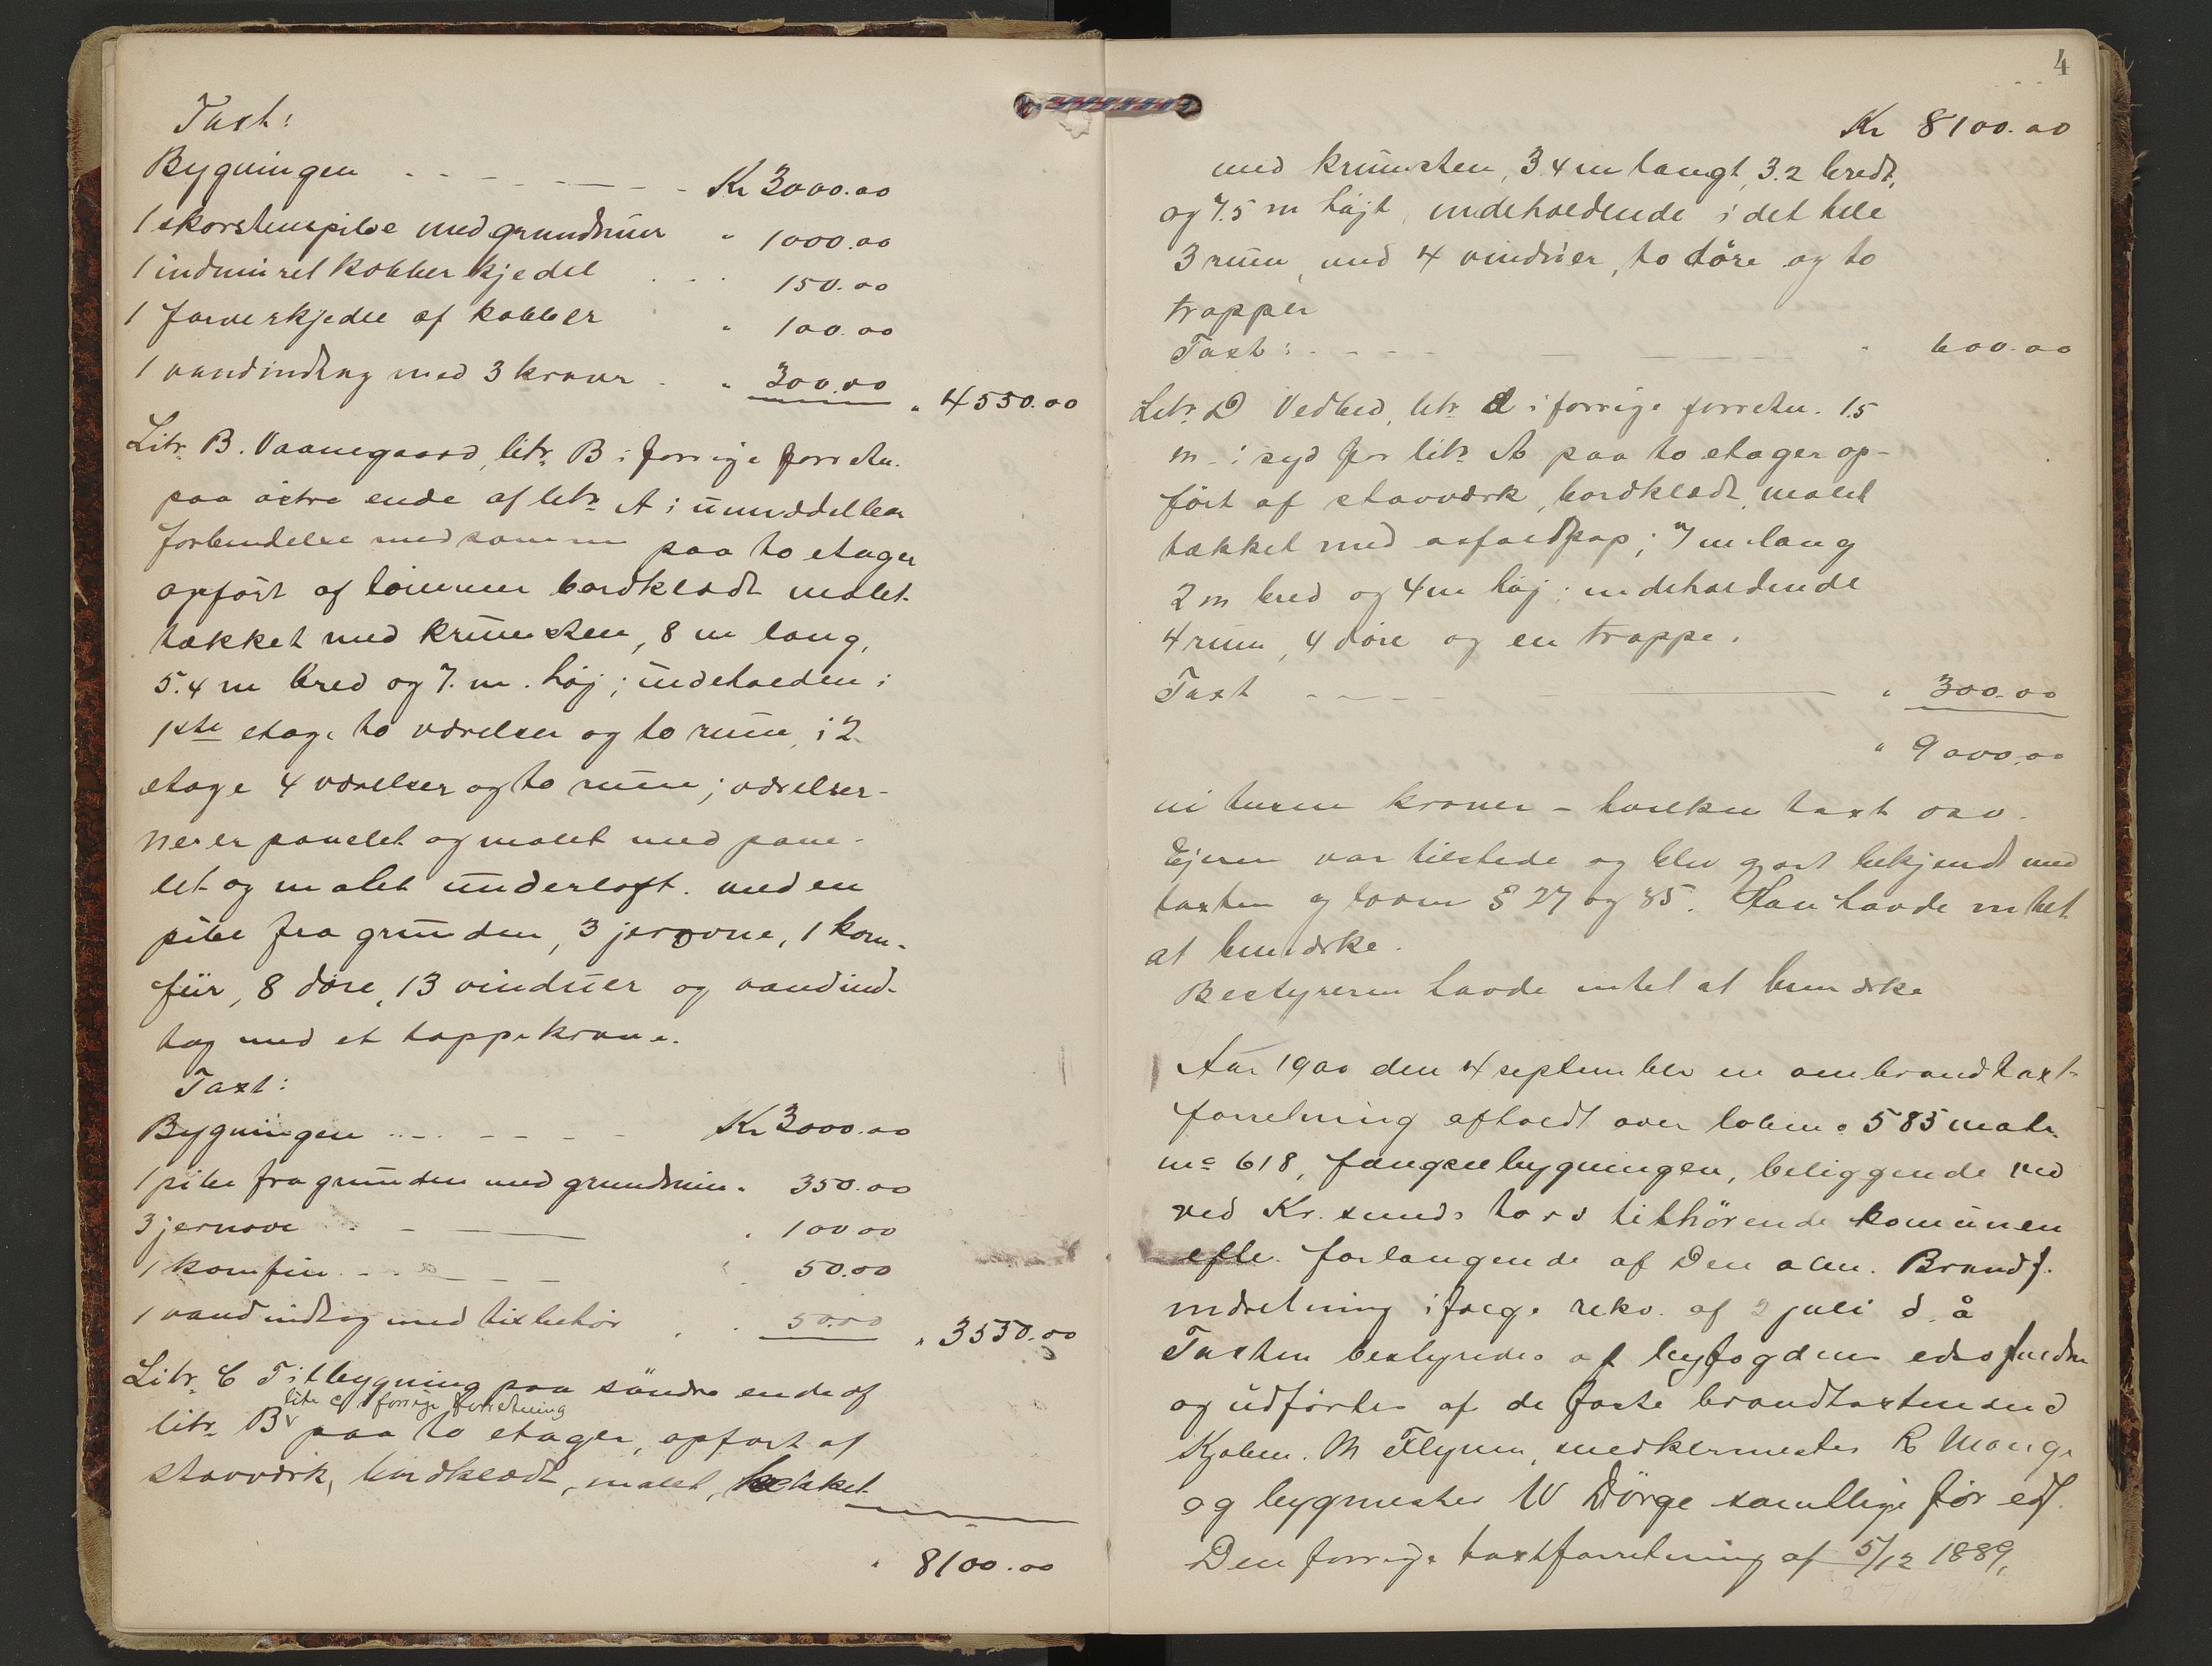 Taxt:
Bygningen - - - - - Kr 3000.00
1 skorstenspibe med grundmur " 1000.00
1 indmuret kobberkjedel . . . 150.00
1 farverkjedel af kobber " 100.00
1 vandindtag med 3 kraner . " 300.00 " 4550.00
Litr. B. Vaanegaard, litr. B i forrige forretn.
paa östre ende af litr. A i umiddelbar
forbindelse med samme paa to etager
opført af tømmer bordklædt malet
tækket med krumsten, 8 m lang,
5.4 m bred og 7. m. høj; indeholden i
1ste etage to værelser og to rum, i 2
etage 4 værelser og to rum; værelser-
ner er panelet og malet med pane-
let og malet underloft. med en
pibe fra grunden, 3 jernovne, 1 kom-
für, 8 döre, 13 vinduer og vandind-
tag med et tappekrane.
Taxt:
Bygningen - - - - - Kr 3000.00
1 pibe fra grunden med grundmur. 350.00
3 jernovne . - - . 100 00
1 komfür - - - - - 50.00
1 vandindtag med tilbehör . . 50.00 " 3550.00
Litr. C Tilbygning paa söndre ende af
litr c i forrige forretning
litr. B paa to etager, opfört af
stavværk, bordklædt, malet, tækket
" 8100.00
4
Kr 8100.00
med krumsten, 3.4 m langt, 3.2 bredt,
og 7.5 m højt, indeholdende i det hele
3 rum, med 4 vinduer, to döre og to
trapper
Taxt: - - - - " 600.00
Litr. D Vedbod, litr. d i forrige forretn. 1.5
m. i syd for litr. A paa to etager op-
fört af stavværk, bordklædt, malet
tækket med asfaldpap; 7 m lang
2 m bred og 4 m höj; indeholdende
4 rum, 4 döre og en trappe.
Taxt - - - - " 300.00
" 9000.00
ni tusen kroner - hvilken taxt osv.
Ejeren var tilstede og blev gjort bekjendt med
taxten og loven § 27 og 35. Han havde intet
at bemærke.
Bestyreren havde intet at bemærke
Aar 1900 den 4 september en ombrandtaxt-
forretning afholdt over löbeno 585 matr.
no 618, fængselsbygningen, beliggende ved
ved Kr.sunds torv tilhörende komunen
efter forlangende af Den alm. Brandf.
indretning ifölge rekv. af 2 juli d. å
Taxten bestyredes af byfogdens edsv fuldm
og udförtes af de faste brandtaxtmænd
Kjøbm. M Flynn, snedkermester R Monge
og bygmester W Dörge samtlige før edf.
Den forrige taxtforretning af 5/12 1889,